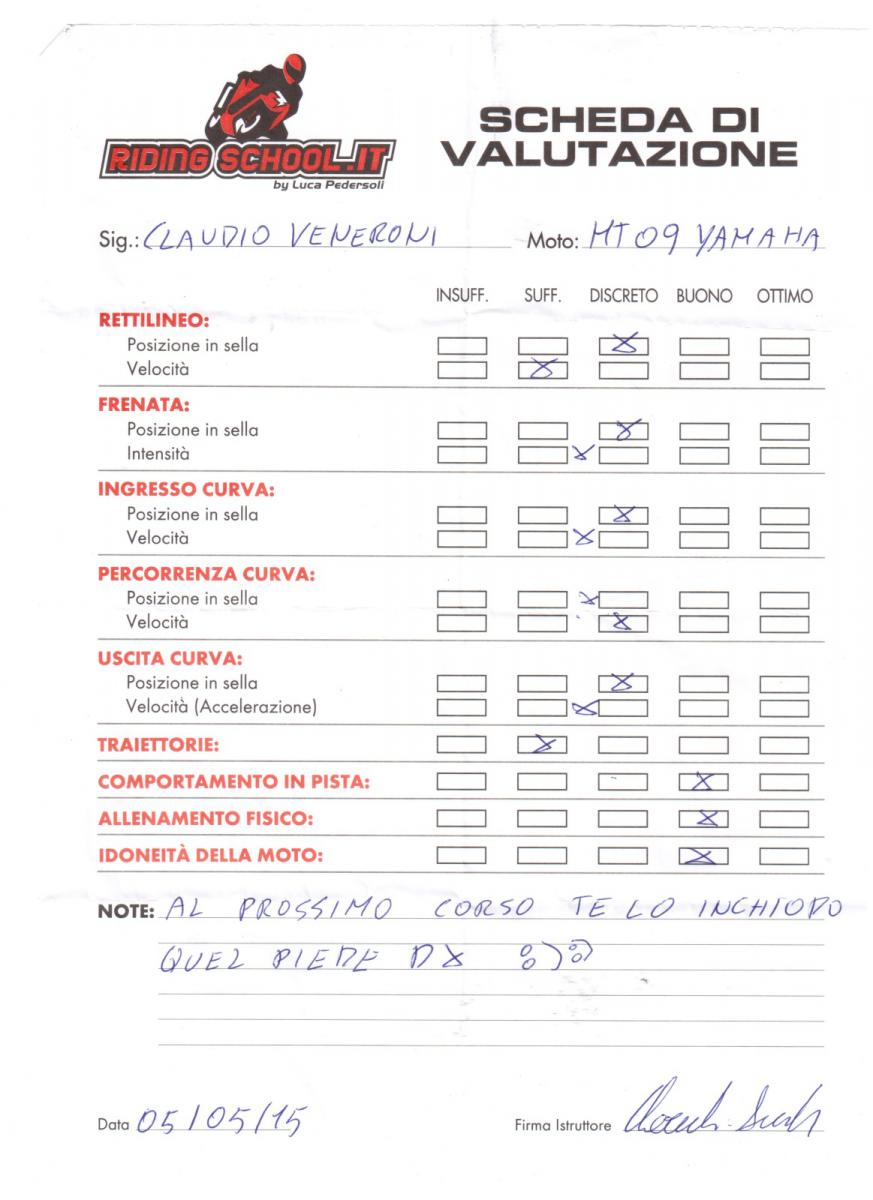 RIDING SCHOOL.IT
by Luca Pedersoli
SCHEDA DI
VALUTAZIONE
Sig.: CLAUDIO VENERONI Moto: MT09 YAMAHA
INSUFF. SUFF. DISCRETO BUONO OTTIMO
RETTILINEO:
Posizione in sella
Velocità
FRENATA:
Posizione in sella
Intensità
INGRESSO CURVA:
Posizione in sella
Velocità
PERCORRENZA CURVA:
Posizione in sella
Velocità
USCITA CURVA:
Posizione in sella
Velocità (Accelerazione)
TRAIETTORIE:
COMPORTAMENTO IN PISTA:
ALLENAMENTO FISICO:
IDONEITÀ DELLA MOTO:
NOTE: AL PROSSIMO CORSO TE LO INCHIODO
QUEL PIEDE DX
Data 05/05/15 Firma Istruttore